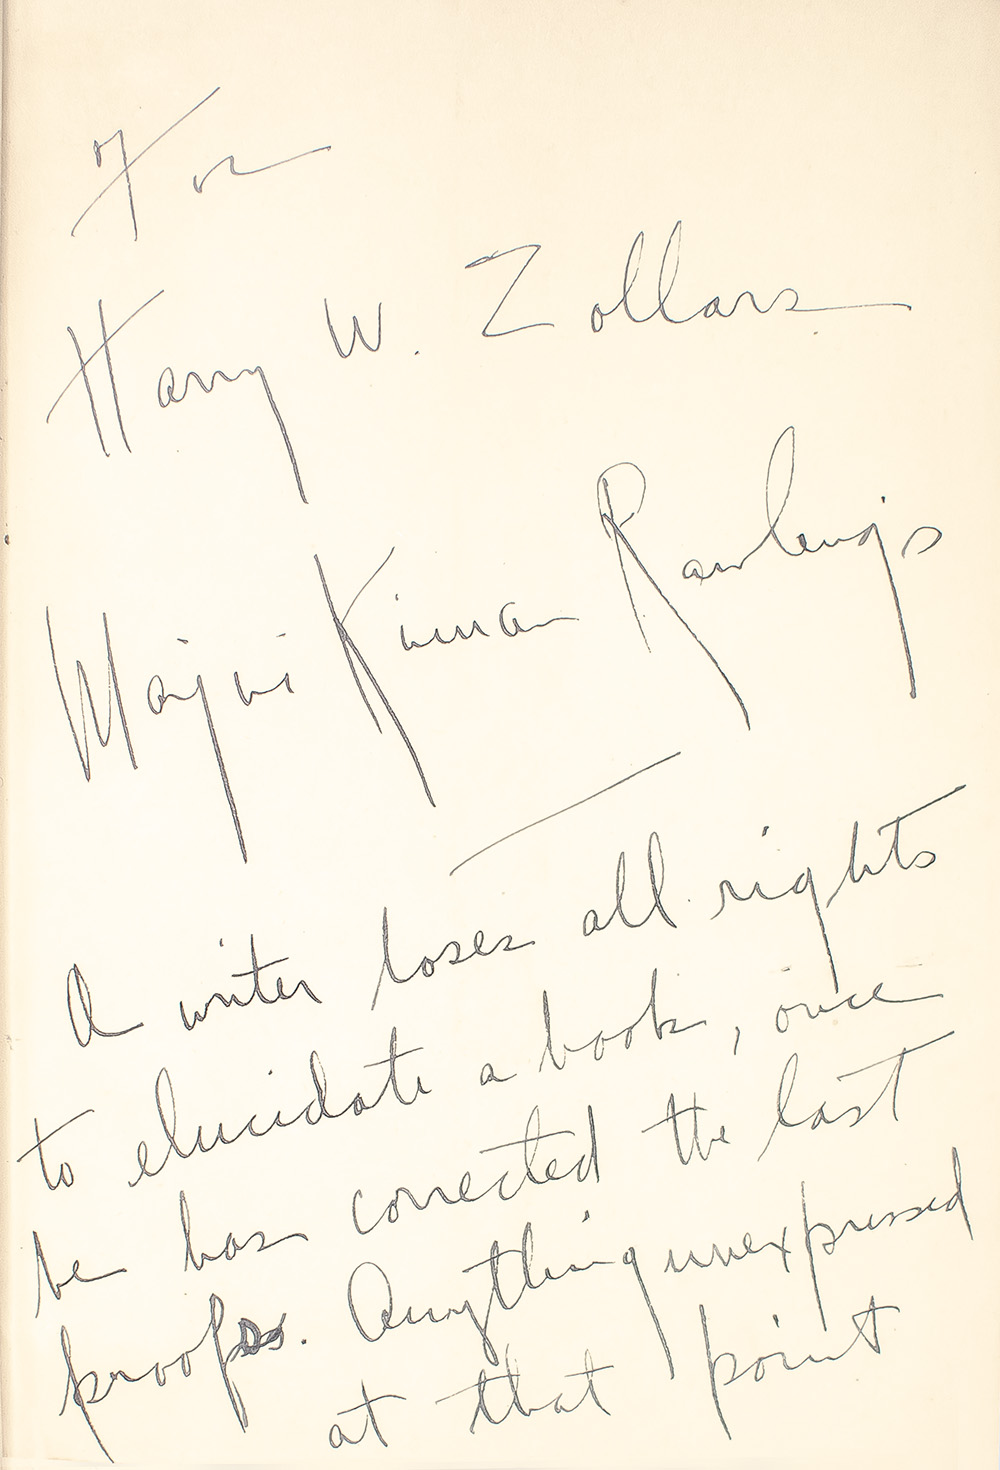 For
Harry W. Zollars
Marjorie Kinnan Rawlings
A writer loses all rights
to elucidate a book, once
he has corrected the last
proofs. Anything unexpressed
at that point